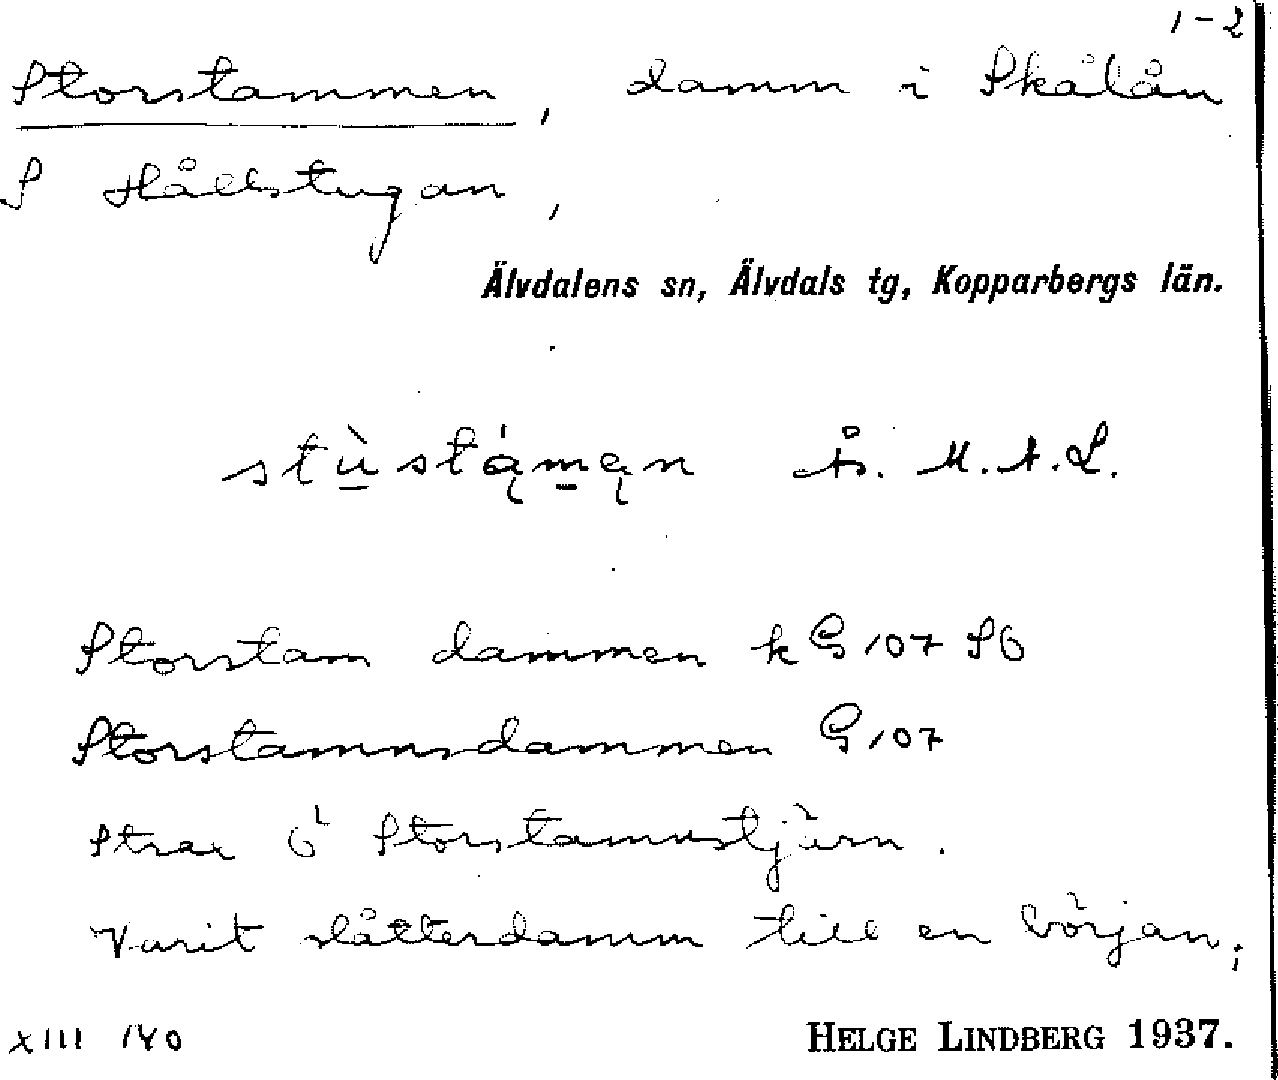 1-2
Storstammen, damm i Skålån
S Hållstugan,
Älvdalens sn, Älvdals tg, Kopparbergs län.
stùstą́mąn Ås. M.A.L.
Storstam dammen kG107 SÖ
Storstamnsdammen G107
Strax Ö Storstamnstjärn.
Varit slåtterdamm till en början;
XIII 140
HELGE LINDBERG 1937.